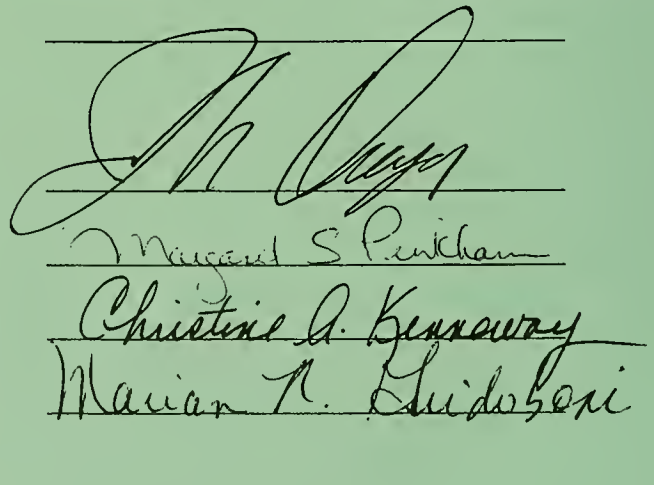 Margaret S Pinkham
Christine A. Kennaway
Marian N. Guidoboni